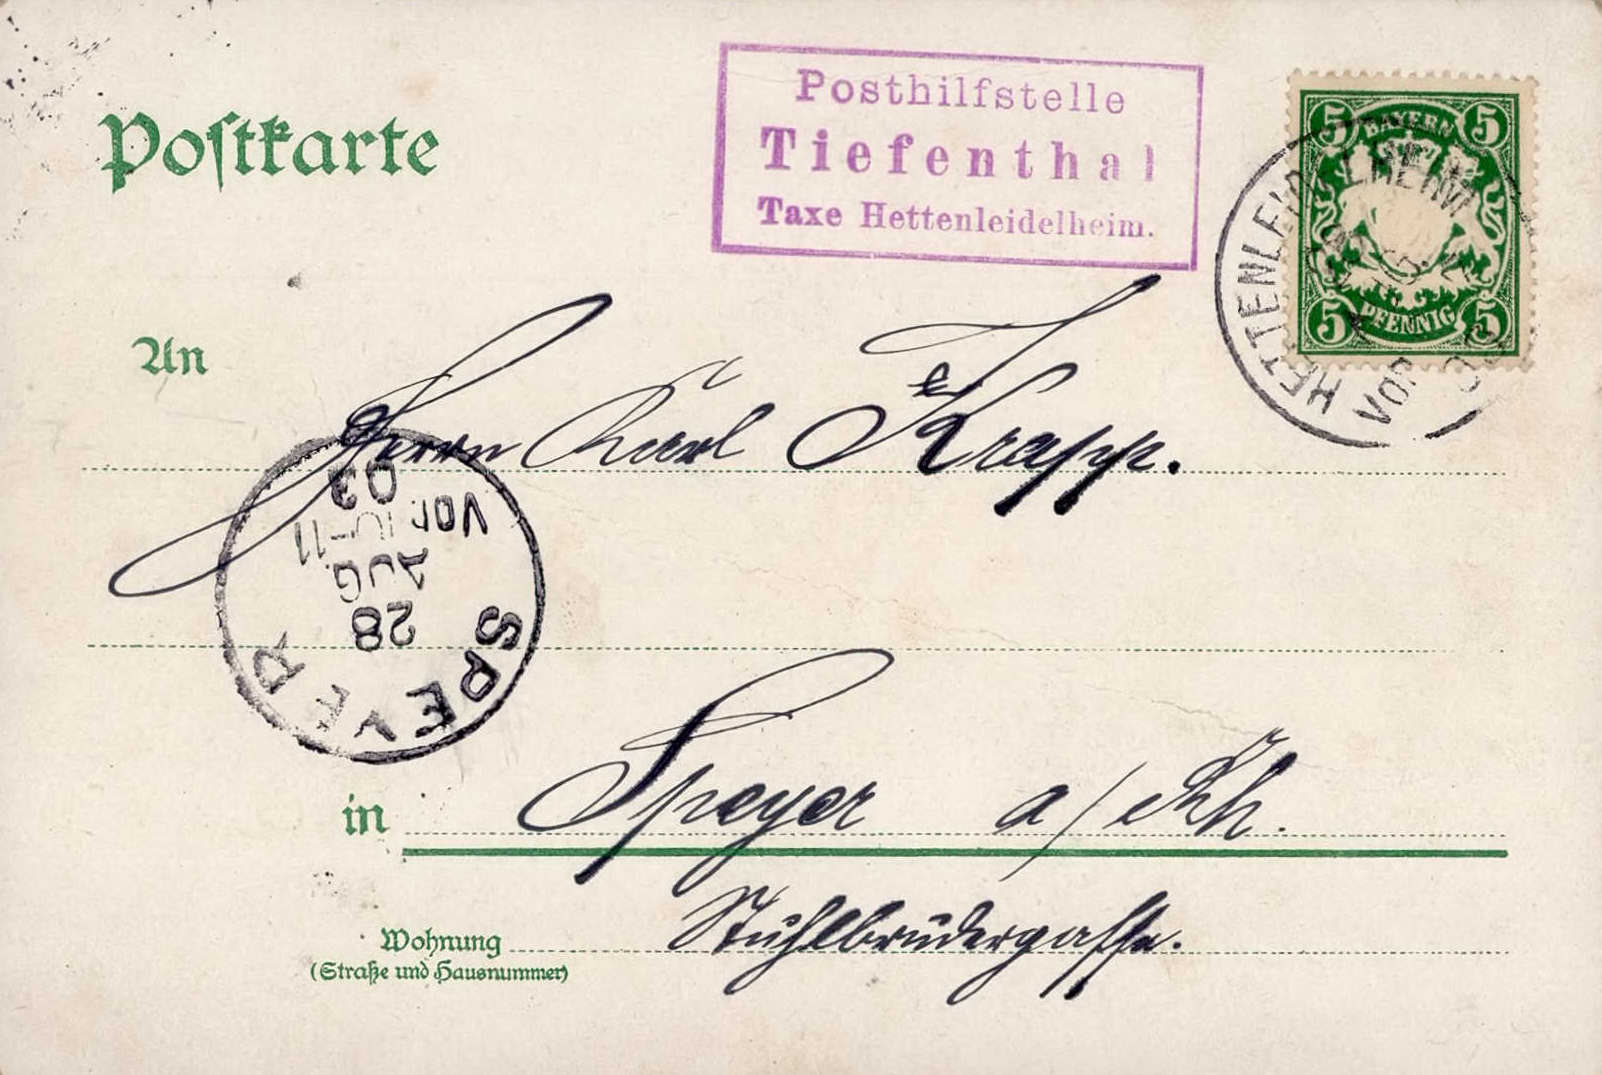 Postkarte
Posthilfstelle
Tiefenthal
Taxe Hettenleidelheim.
5 BAYERN 5
5 PFENNIG 5
HETTENLEIDELHEIM
VOR
An
Herrn Karl Krapp.
SPEYER
28
AUG.
VOR.10-11
03
in Speyer a/Rh.
Wohnung Stuhlbrudergasse.
(Straße und Hausnummer)